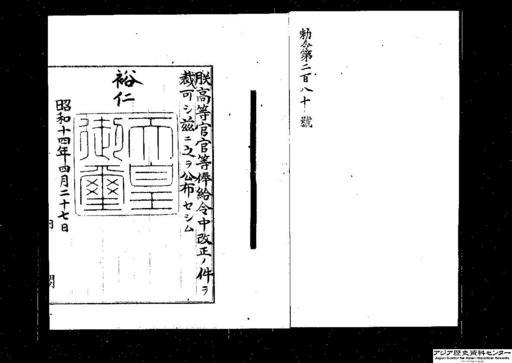 勅令第二百八十號
朕高等官官等俸給令中改正ノ件ヲ
裁可シ茲ニ之ヲ公布セシム
裕仁
天皇
御璽
昭和十四年四月二十七日
内閣
アジア歴史資料センター
Japan Center for Asian Historical Records